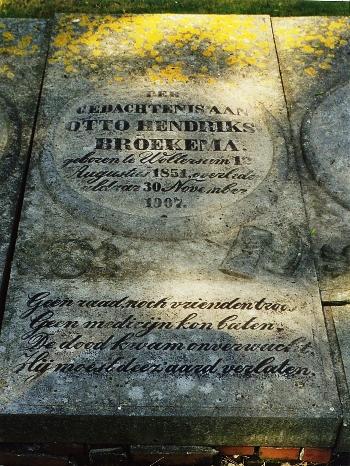 TER
GEDACHTENIS AAN
OTTO HENDRIKS
BROEKEMA.
geboren te Woltersum 12
Augustus 1851, overlede
aldaar 30 November
1907.
Geen raad, noch vriendentroost
Geen medicijn kon baten.
De dood kwam onverwacht,
Hij moest deez' aard verlaten.